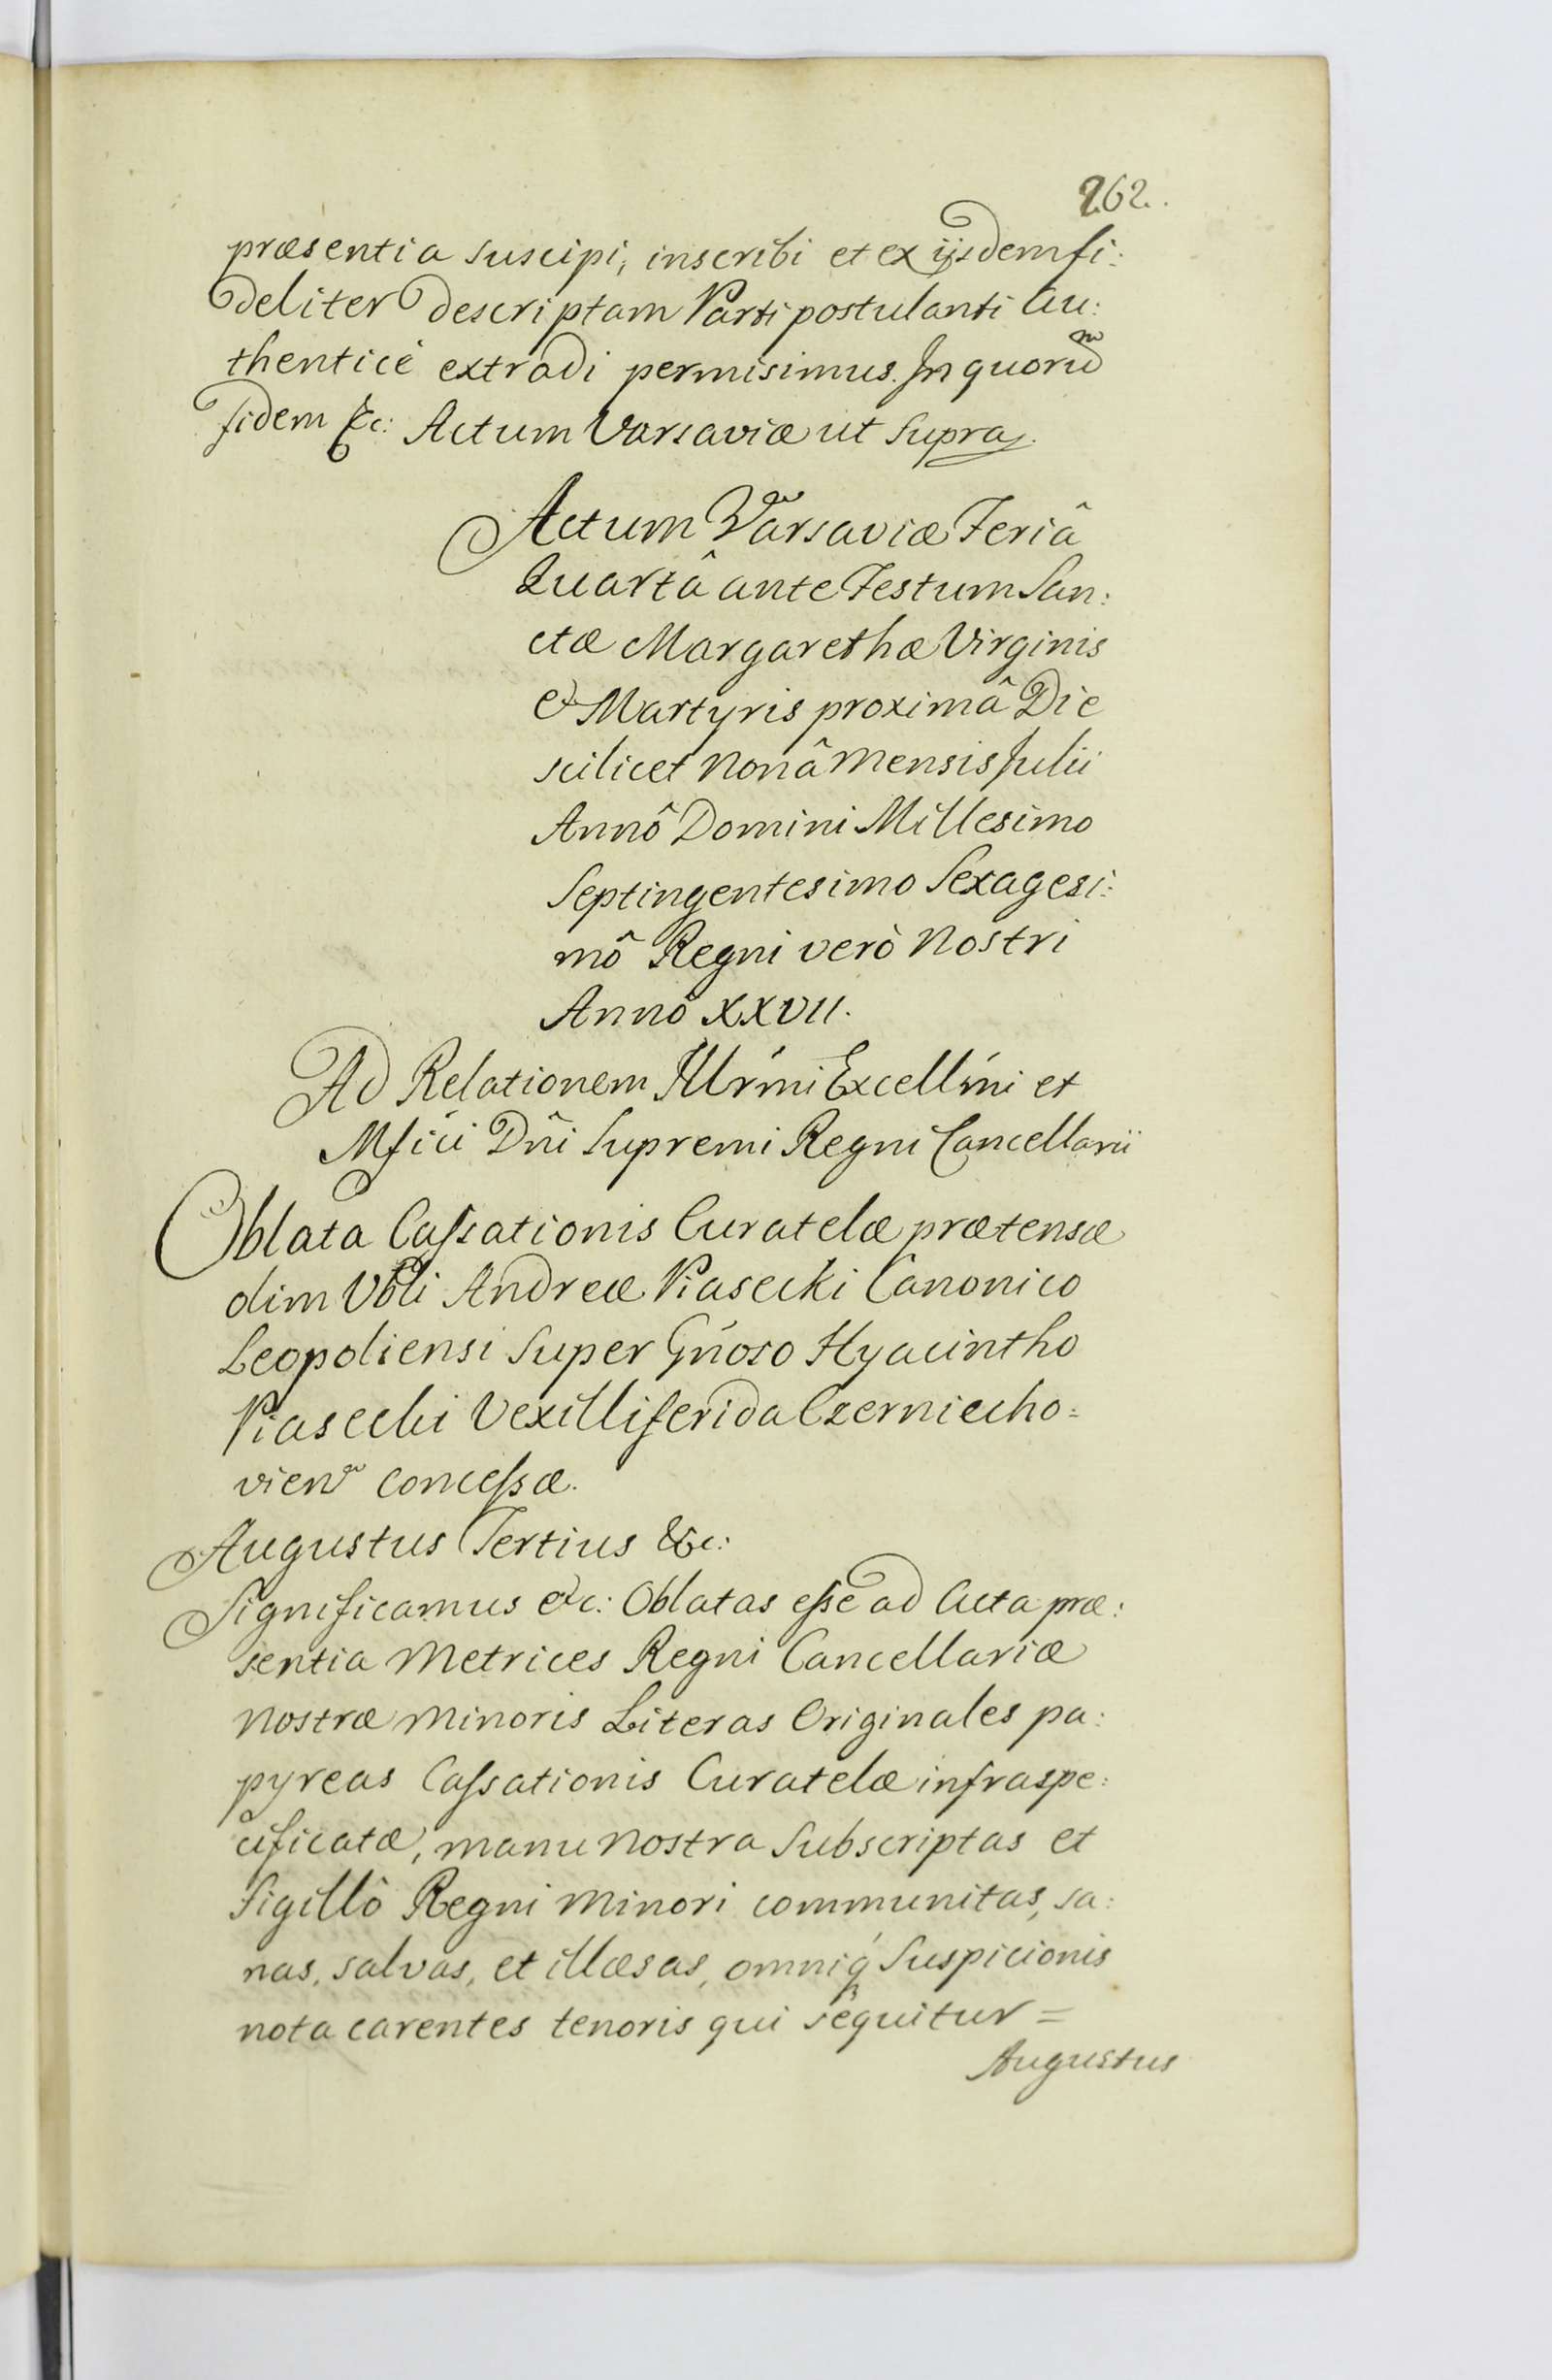 262.
præsentia suscipi, inscribi et ex ijsdem fi:
deliter descriptam Parti postulanti Au:
thenticè extradi permisimus. In quorũ
fidem &c: Actum Varsaviæ ut supra.
Actum Varsaviæ Feriâ
Quartâ ante Festum San:
ctæ Margarethæ Virginis
& Martyris proximâ Die
scilicet nonâ mensis Julii
Annô Domini Millesimo
Septingentesimo Sexagesi:
mô Regni verò Nostri
Annô XXVII.
Ad Relationem Illrm̃i Excellm̃i et
Mfici Dñi Supremi Regni Cancellarii
Oblata Cassationis Curatelæ prætensæ
olim Vbli Andreæ Piasecki Canonico
Leopoliensi super Gñoso Hyacintho
Piasecki Vexilliferida Czerniecho=
vien concessæ.
Augustus Tertius &c:
Significamus &c: Oblatas esse ad Acta præ:
sentia Metrices Regni Cancellariæ
Nostræ Minoris Literas Originales pa:
pyreas Cassationis Curatelæ infraspe:
cificatæ, manu Nostra subscriptas et
Sigillô Regni Minori communitas, sa:
nas, salvas, et illæsas, omniq́ suspicionis
nota carentes tenoris qui sequitur =
Augustus